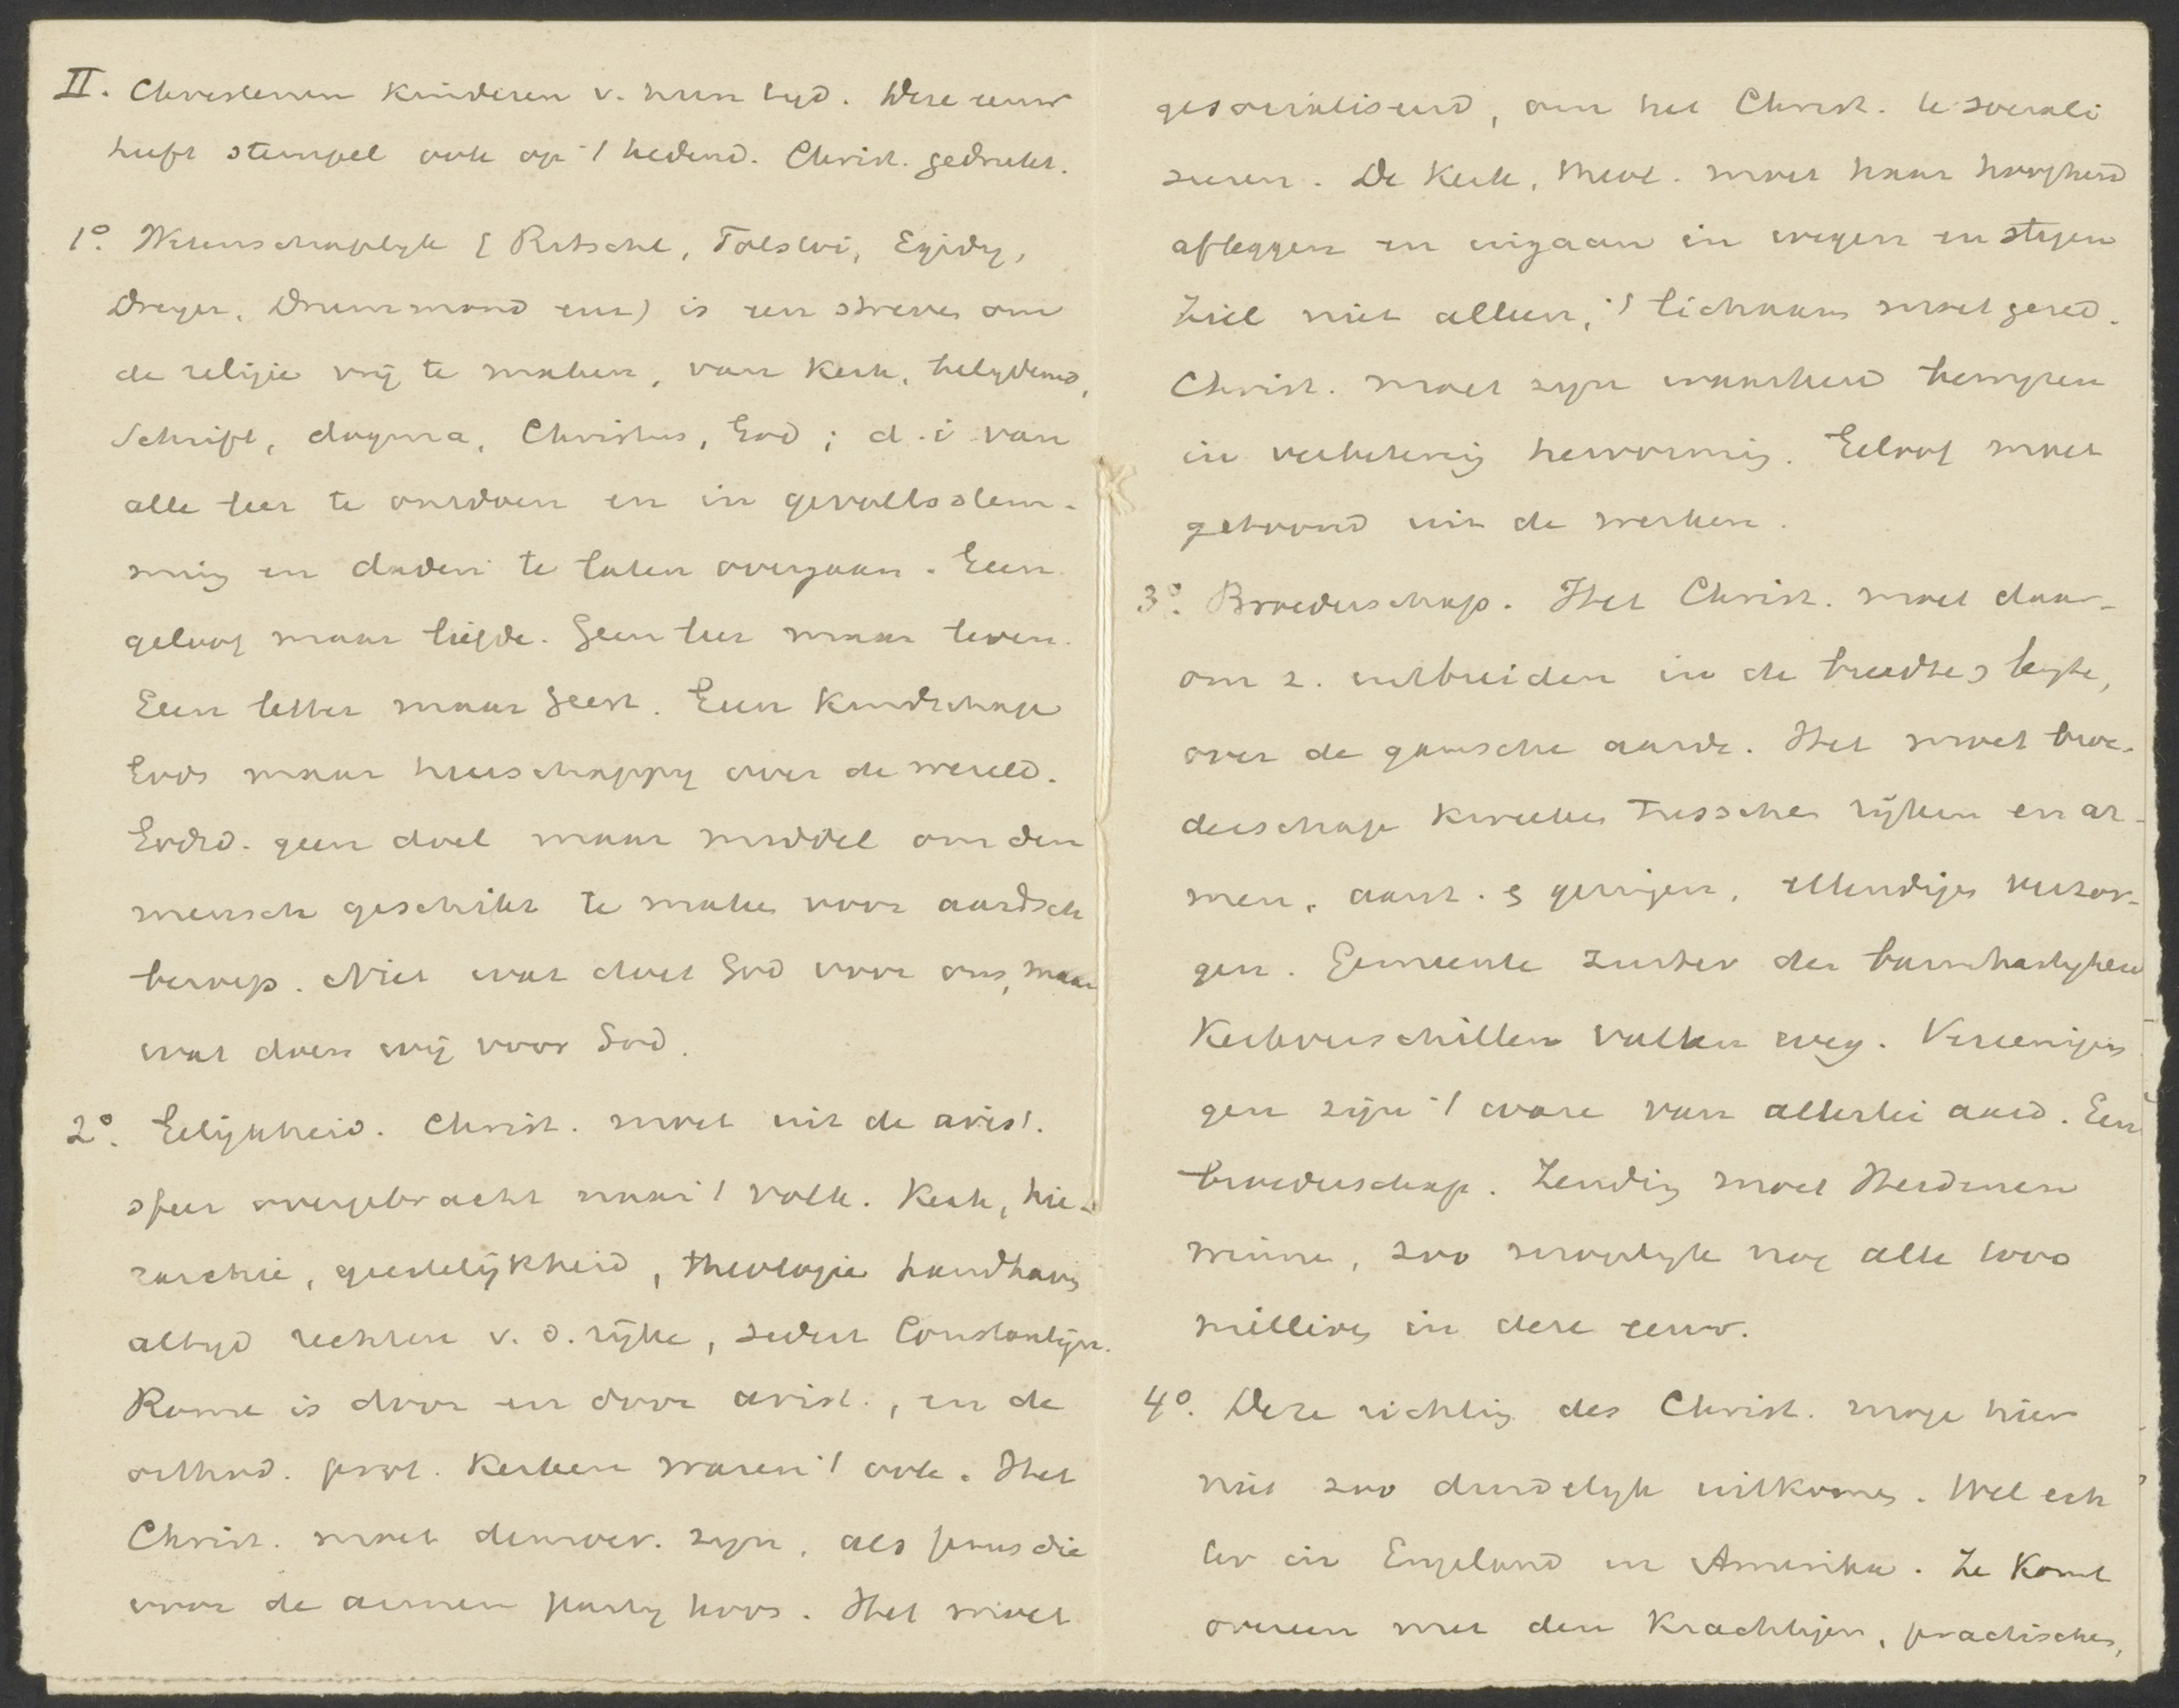 II. Christenen kinderen v. hun tyd. Deze eeuw
heeft stempel ook op 't hedend. Christ. gedrukt.
1º. Wetenschaplyk (Ritschl, Tolstoi, Egidy,
Dreyer, Drummond enz) is een streven om
de religie vrij te maken, van Kerk, belydenis,
Schrift, dogma, Christus, God; d.i van
alle leer te ontdoen en in gevoelsstem-
ming en daden te laten overgaan. Geen
geloof maar liefde. Geen leer maar leven.
Geen letter maar geest. Geen kindschap
Gods maar heerschappy over de wereld.
Godsd. geen doel maar middel om den
mensch geschikt te maken voor aardsch
beroep. Niet wat doet God voor ons, maar
wat doen wij voor God.
2º. Gelijkheid. Christ. moet uit de arist.
sfeer overgebracht naar 't volk. Kerk, hie-
rarchie, geestelijkheid, theologie handhaven
altyd rechten v. d. rijke, sedert Constantijn.
Rome is door en door arist., en de
orthod. prot. Kerken waren 't ook. Het
Christ. moet democr. zyn, als Jezus die
voor de armen party koos. Het moet
gesocialiseerd, om het Christ. te sociali
seeren. De Kerk, theol. moet haar hoogheid
afleggen en uitgaan in wegen en stegen
Ziel niet alleen, 't lichaam moet gered.
Christ. moet zyn waarheid bewyzen
in verbetering hervorming. Geloof moet
getoond uit de werken.
3º. Broederschap. Het Christ. moet daar-
om z. uitbreiden in de breedte & lengte,
over de gansche aarde. Het moet broe-
derschap kweeken tusschen rijken en ar-
men, aanz. & geringen, ellendigen verzor-
gen. Gemeente zuster der barmhartigheid
Kerkverschillen vallen weg. Vereenigin
gen zijn 't ware van allerlei aard. Een
broederschap. Zending moet Heidenen
winnen, zoo mogelyk nog alle 1000
millioen in deze eeuw.
4º. Deze richting des Christ. moge hier
niet zoo duidelyk uitkomen. Wel ech
ter in Engeland en Amerika. Ze komt
overeen met den krachtigen, practischen,